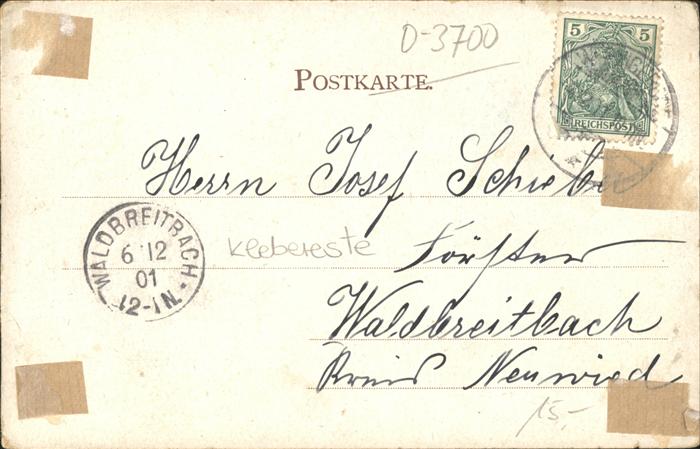 D-3700
5 5
REICHSPOST
POSTKARTE.
Herrn Josef Schieber
WALDBREITBACH
6 12
01
12-1N.
Klebereste
Förster
Waldbreitbach
Kreis Neuwied
15,-